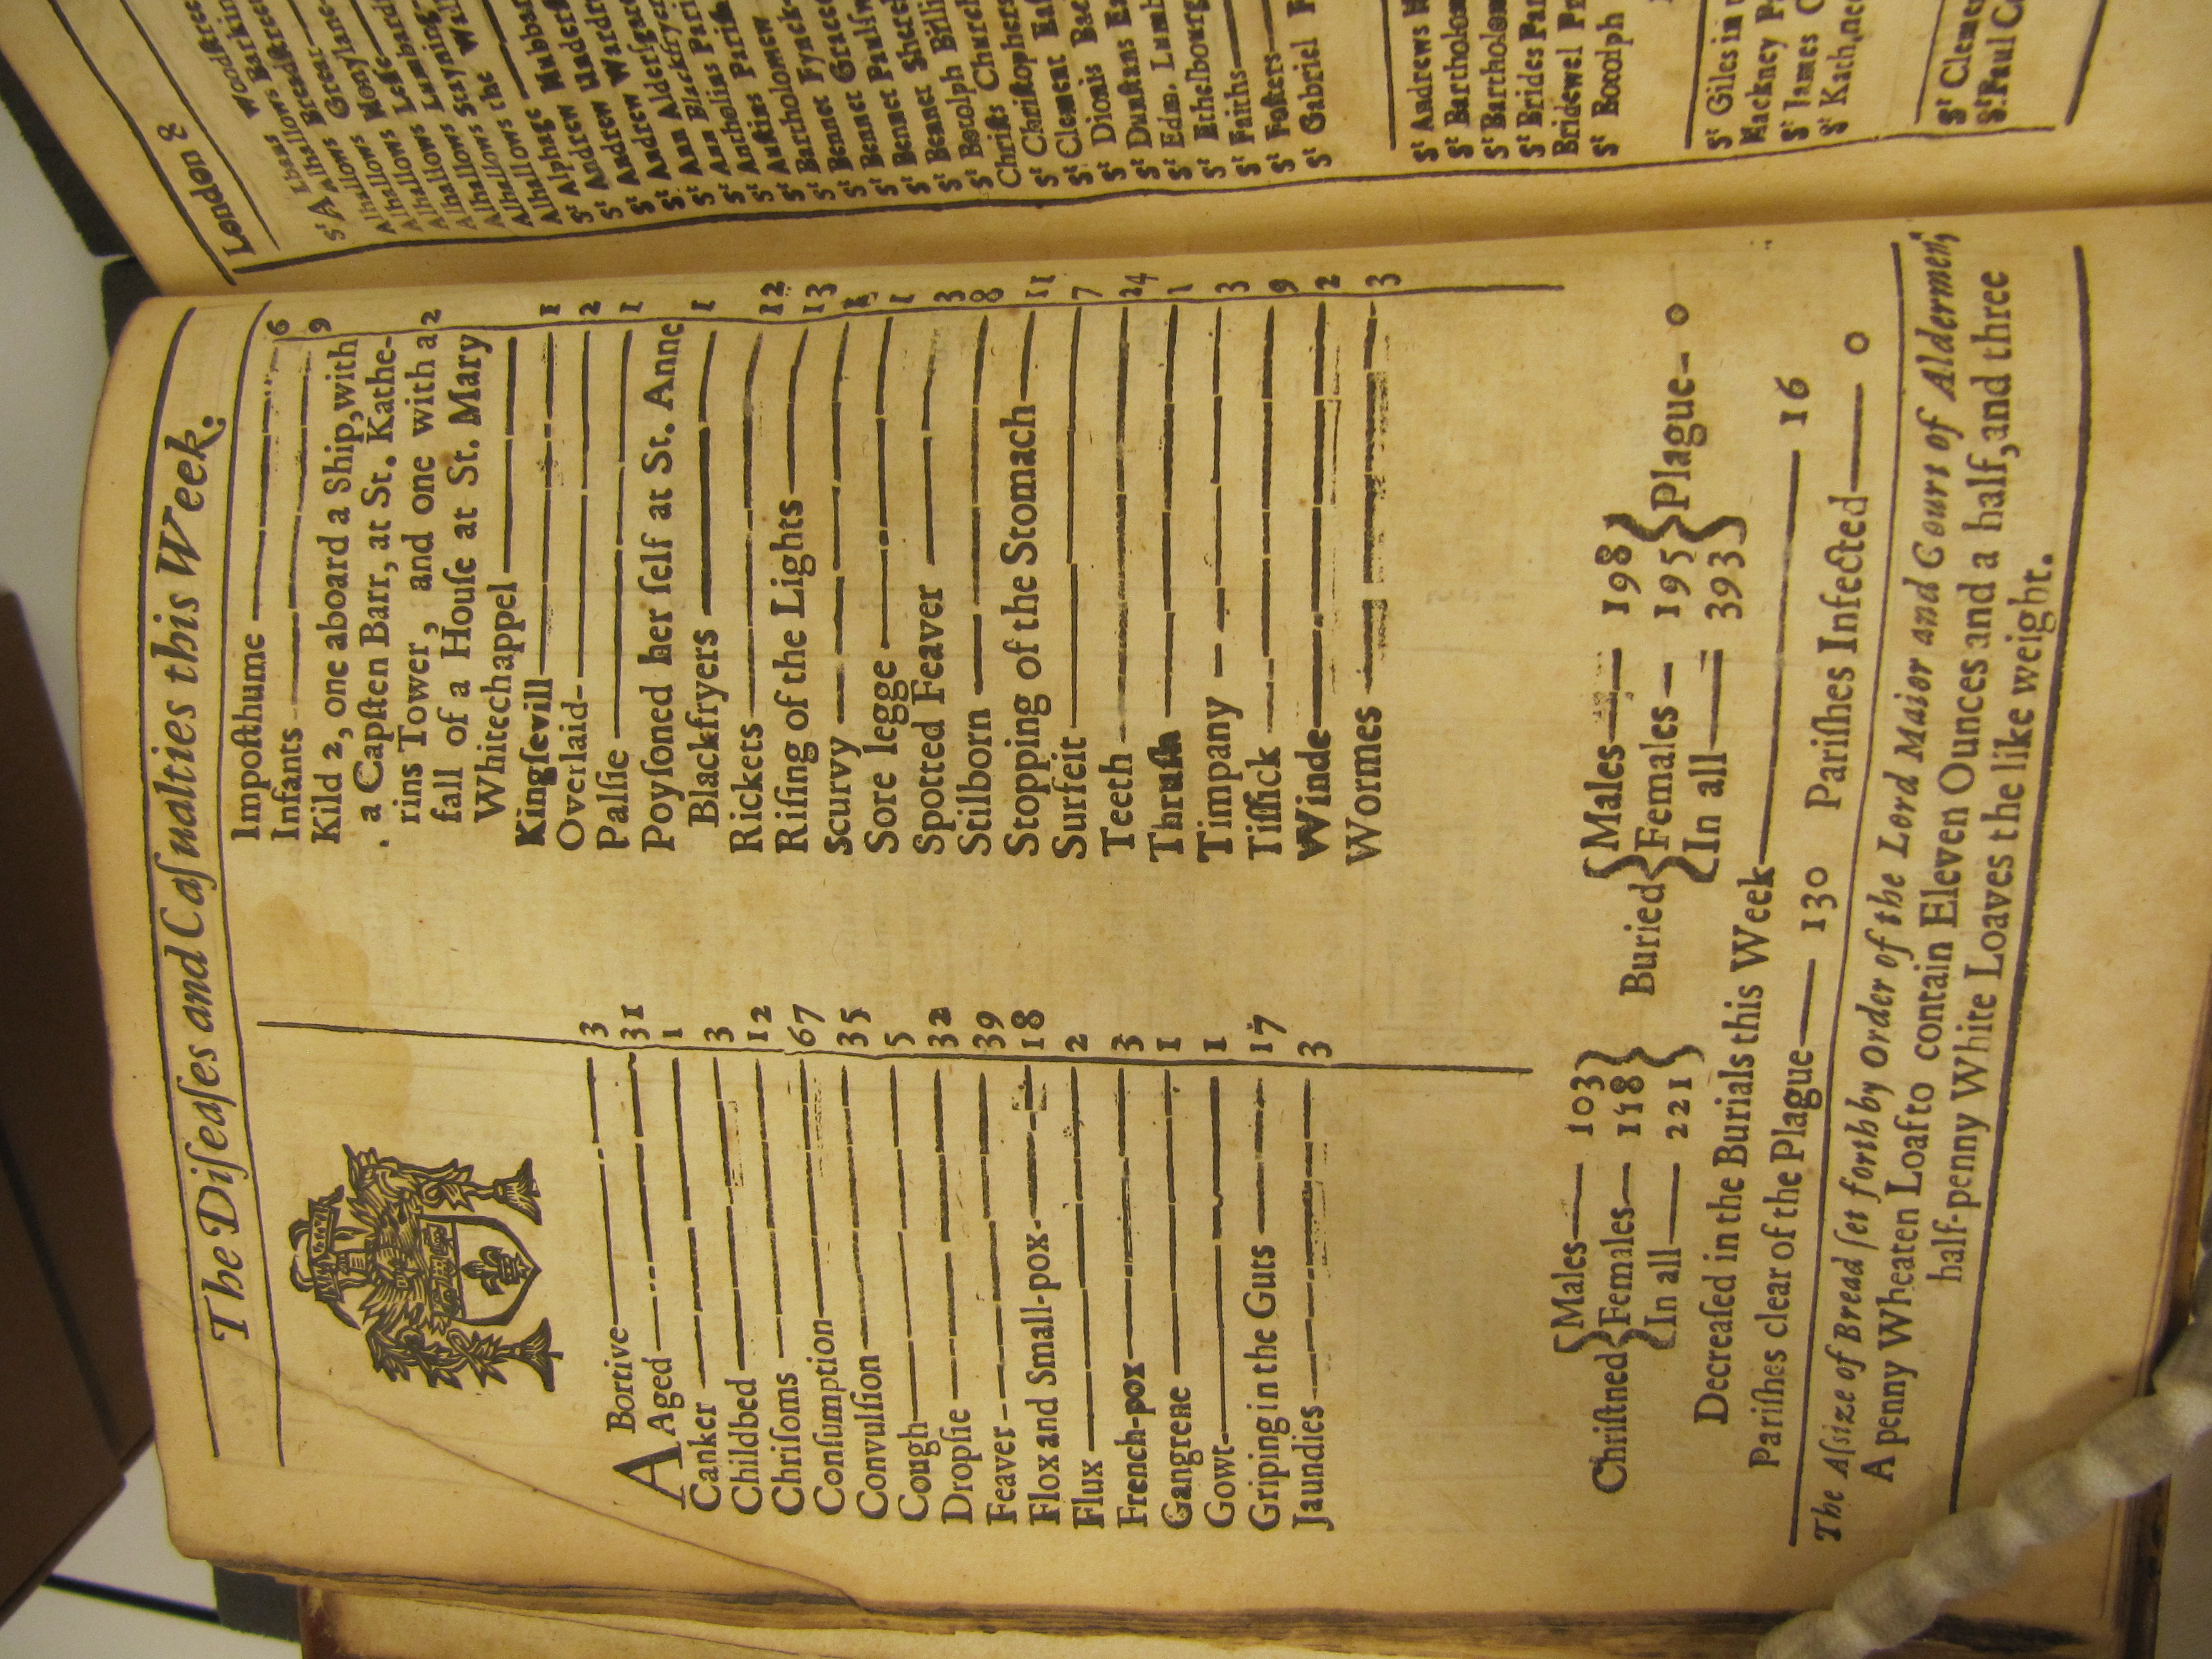 The Diſeaſes and Caſualties this Week.
ABortive 3
Aged 31
Canker 1
Childbed 3
Chriſoms 12
Conſumption 67
Convulſion 35
Cough 5
Dropſie 32
Feaver 39
Flox and Small-pox 18
Flux 2
French-pox 3
Gangrene 1
Gowt 1
Griping in the Guts 17
Jaundies 3
Impoſthume 6
Infants 9
Kild 2, one aboard a Ship, with
a Capſten Barr, at St. Kathe-
rins Tower, and one with a 2
fall of a Houſe at St. Mary
Whitechappel
Kingſevill 1
Overlaid 2
Palſie 1
Poyſoned her ſelf at St. Anne
Blackfryers 1
Rickets 12
Riſing of the Lights 13
Scurvy
Sore legge 1
Spotted Feaver 3
Stilborn 8
Stopping of the Stomach 11
Surfeit 7
Teeth 24
Thruſh 1
Timpany 3
Tiſſick 9
Winde 2
Wormes 3
Chriſtned { Males 103 Females 118 In all 221 }
Buried { Males 198 Females 195 In all 393 } Plague 0
Decreaſed in the Burials this Week 16
Pariſhes clear of the Plague 130 Pariſhes Infected 0
The Aſsize of Bread ſet forth by Order of the Lord Maior and Court of Aldermen,
A penny Wheaten Loaf to contain Eleven Ounces and a half, and three
half-penny White Loaves the like weight.
London 8
St Albans Woodſtree
Alhallows Barkin
Alhallows Breadſtree
Alhallows Great
Alhallows Hony-lane
Alhallows Leſſe
Alhallows Lumbard
Alhallows Stayning
Alhallows the Wall
Alphage
St Andrew Hubbar
St Andrew Underſ
St Andrew Wardr
St Ann Alderſgate
St Ann Blackfryers
St Antholins Pariſh
St Auſtins Pariſh
St Bartholomew
St Bennet Fynck
St Bennet Grace
St Bennet Paulſw
St Bennet Shere
St Botolph Billi
Chriſts Church
St Chriſtophers
St Clement Eaſ
St Dionis Bac
St Dunſtans Ea
St Edm. Lumb
St Ethelbourg
St Faiths
St Foſters
St Gabriel F
St Andrews H
St Bartholom
St Bartholom
St Brides Par
Bridewel Pr
St Botolph
St Giles in
Hackney P
St James C
St Kath. nea
St Clemen
St. Paul C